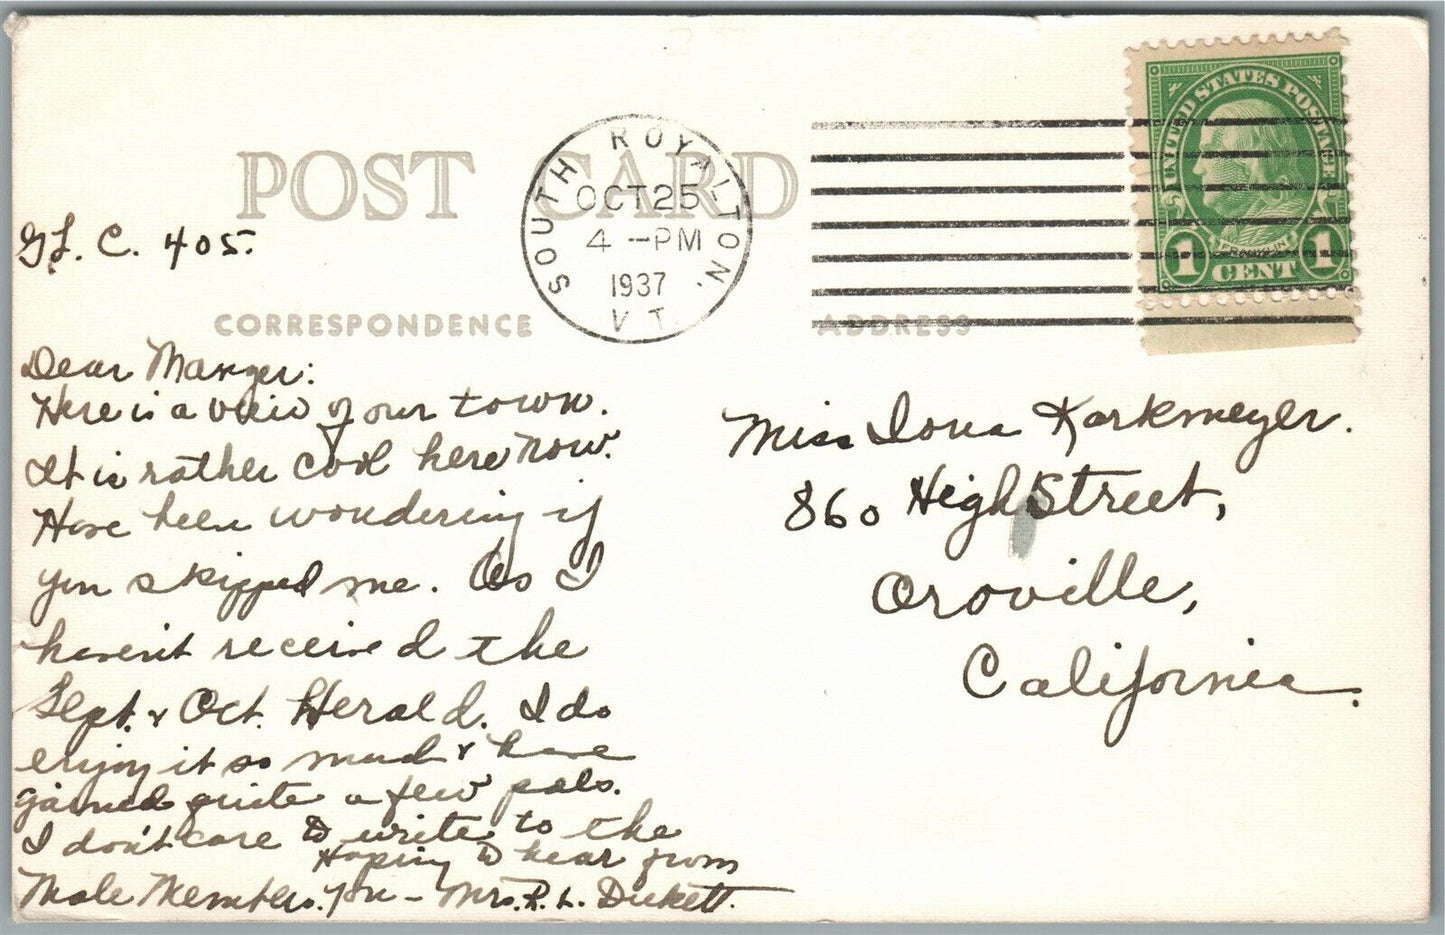 POST CARD
SOUTH ROYALTON,
OCT 25
4 -PM
1937
VT.
UNITED STATES POSTAGE
FRANKLIN
1 CENT 1
G.L. C. 405.
CORRESPONDENCE
ADDRESS
Dear Manger:
Here is a view of our town.
It is rather cool here now.
Have been wondering if
you skipped me. As I
haven't received the
Sept. & Oct. Herald. I do
enjoy it so much & have
gained quite a few pals.
I don't care to write to the
Male Members. Hoping to hear from
you - Mrs. R. L. Duckett.
Miss Iona Karkmeyer.
860 High Street,
Oroville,
California.